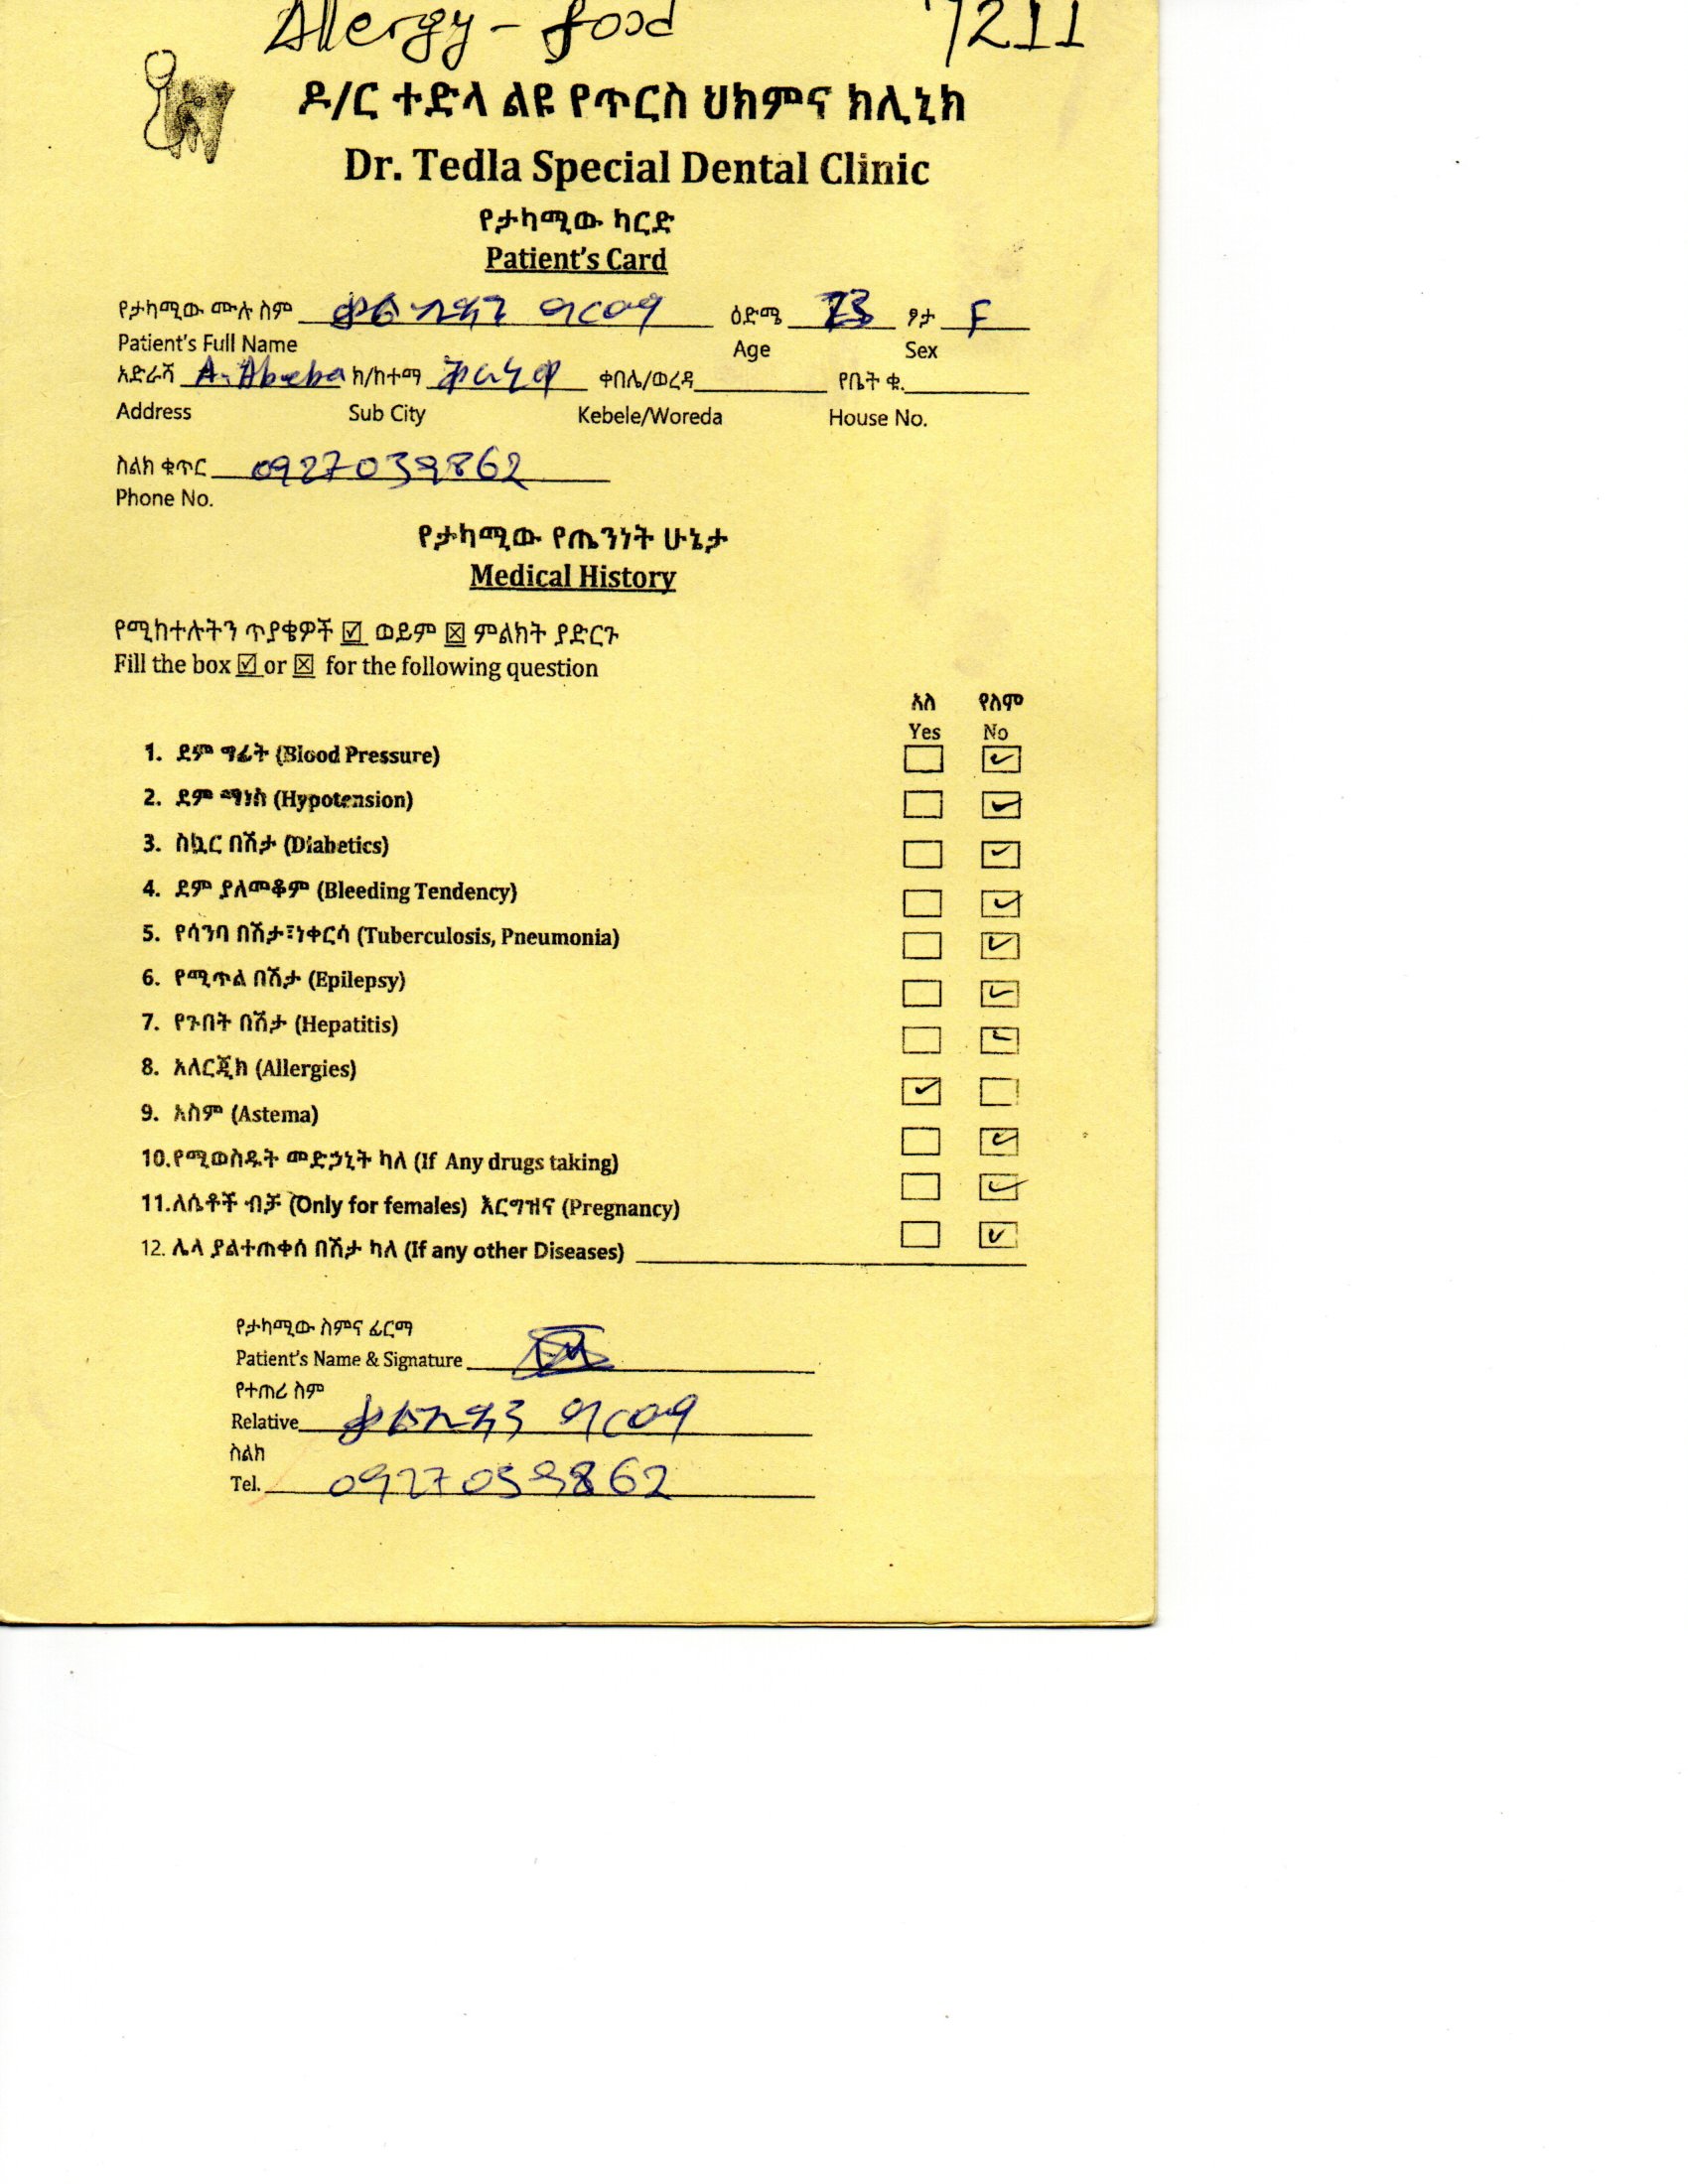 Allergy - food 7211
ዶ/ር ተድላ ልዩ የጥርስ ህክምና ክሊኒክ
Dr. Tedla Special Dental Clinic
የታካሚው ካርድ
Patient's Card
የታካሚው ሙሉ ስም ግርማ ዕድሜ ፆታ F
Patient's Full Name Age Sex
አድራሻ A. Abeba ክ/ከተማ ቀበሌ/ወረዳ የቤት ቁ.
Address Sub City Kebele/Woreda House No.
ስልክ ቁጥር 0927039862
Phone No.
የታካሚው የጤንነት ሁኔታ
Medical History
የሚከተሉትን ጥያቄዎች ☑ ወይም ☒ ምልክት ያድርጉ
Fill the box ☑ or ☒ for the following question
አለ የለም
Yes No
1. ደም ግፊት (Blood Pressure) ☐ ☑
2. ደም ማነስ (Hypotension) ☐ ☑
3. ስኳር በሽታ (Diabetics) ☐ ☑
4. ደም ያለመቆም (Bleeding Tendency) ☐ ☑
5. የሳንባ በሽታ፣ነቀርሳ (Tuberculosis, Pneumonia) ☐ ☑
6. የሚጥል በሽታ (Epilepsy) ☐ ☑
7. የጉበት በሽታ (Hepatitis) ☐ ☑
8. አለርጂክ (Allergies) ☑ ☐
9. አስም (Astema) ☐ ☑
10.የሚወስዱት መድኃኒት ካለ (If Any drugs taking) ☐ ☑
11.ለሴቶች ብቻ (Only for females) እርግዝና (Pregnancy) ☐ ☑
12. ሌላ ያልተጠቀሰ በሽታ ካለ (If any other Diseases)
የታካሚው ስምና ፊርማ
Patient's Name & Signature
የተጠሪ ስም
Relative ግርማ
ስልክ
Tel. 0927039862